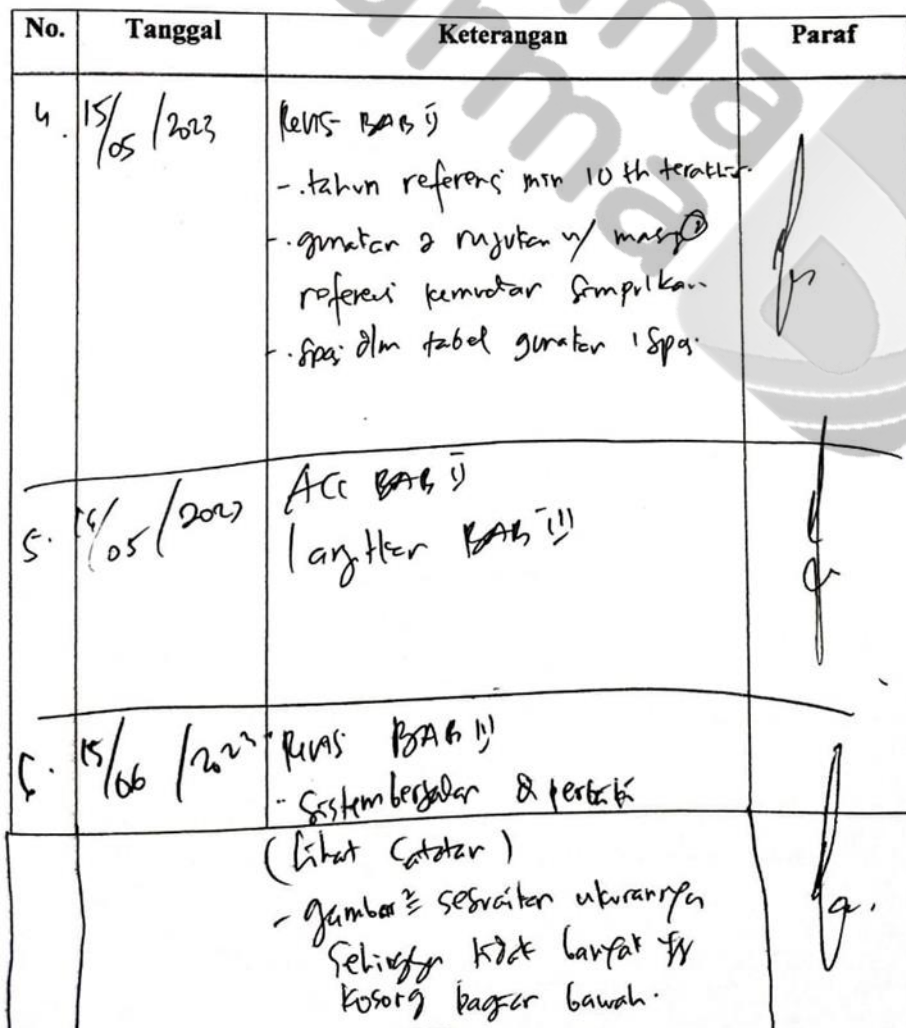 No. Tanggal Keterangan Paraf
4. 15/05/2023 Revisi BAB II
- tahun referensi min 10 th terakhir
- gunakan 2 rujukan u/ masing2
referensi kemudian simpulkan
- Spasi dlm tabel gunakan 1 Spasi
5. /05/2023 ACC BAB II
lanjutkan BAB III
6. 15/06/2023 Revisi BAB III
- Sistem berjalan & perbaiki
(Lihat Catatan)
- gambar2 sesuaikan ukurannya
Sehingga tidak banyak yg
kosong bagian bawah.